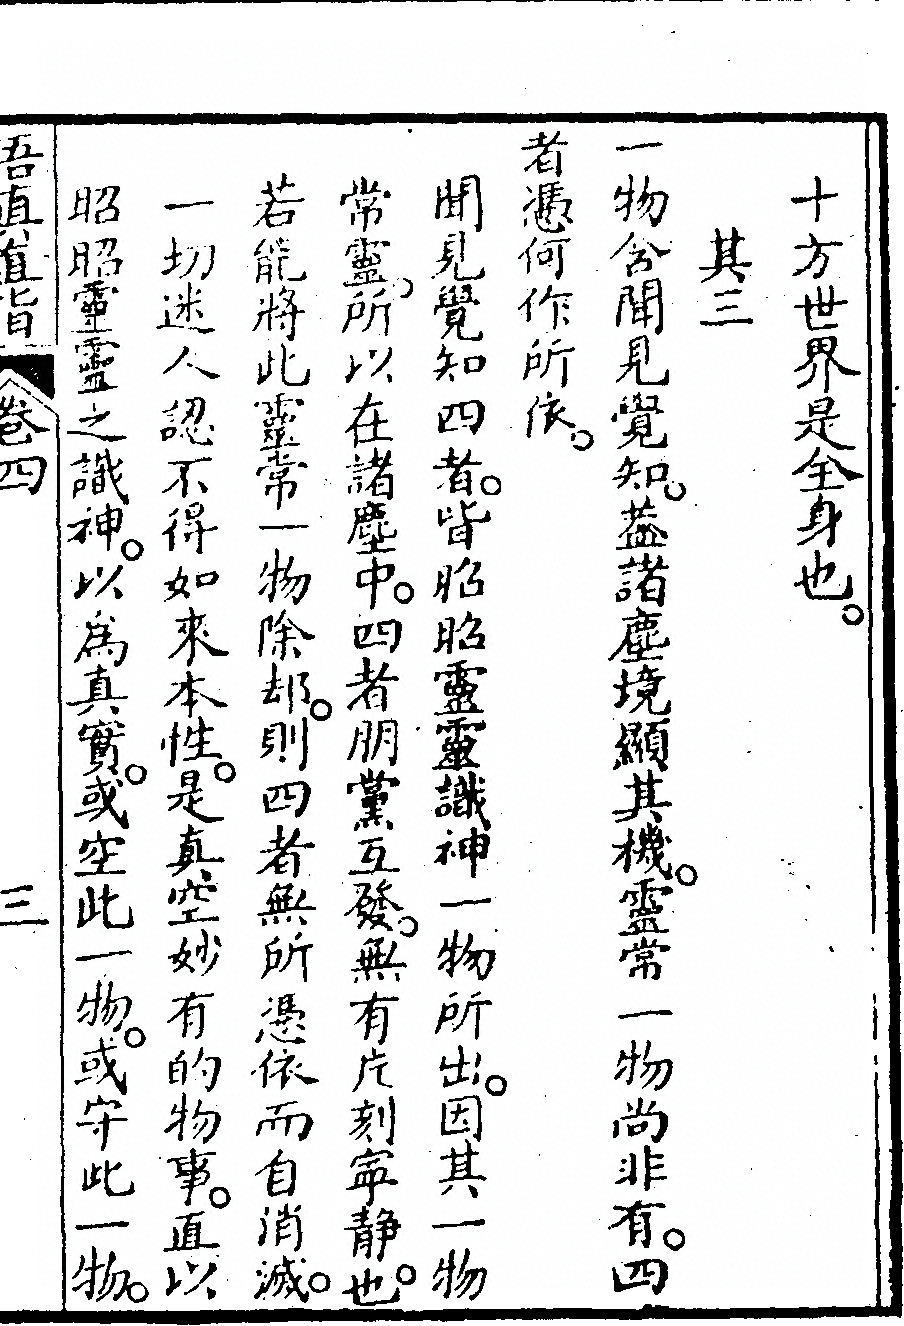 十方世界是全身也。
其三
一物含聞見覺知。葢諸塵境顯其機。靈常一物尚非有。四
者憑何作所依。
聞見覺知四者。皆昭昭靈靈識神一物所出。因其一物
常靈。所以在諸塵中。四者朋黨互發。無有片刻寧靜也。
若能將此靈常一物除却。則四者無所憑依而自消滅。
一切迷人認不得如來本性。是真空妙有的物事。直以
昭昭靈靈之識神。以爲真實。或空此一物。或守此一物。
悟真直指
卷四
三